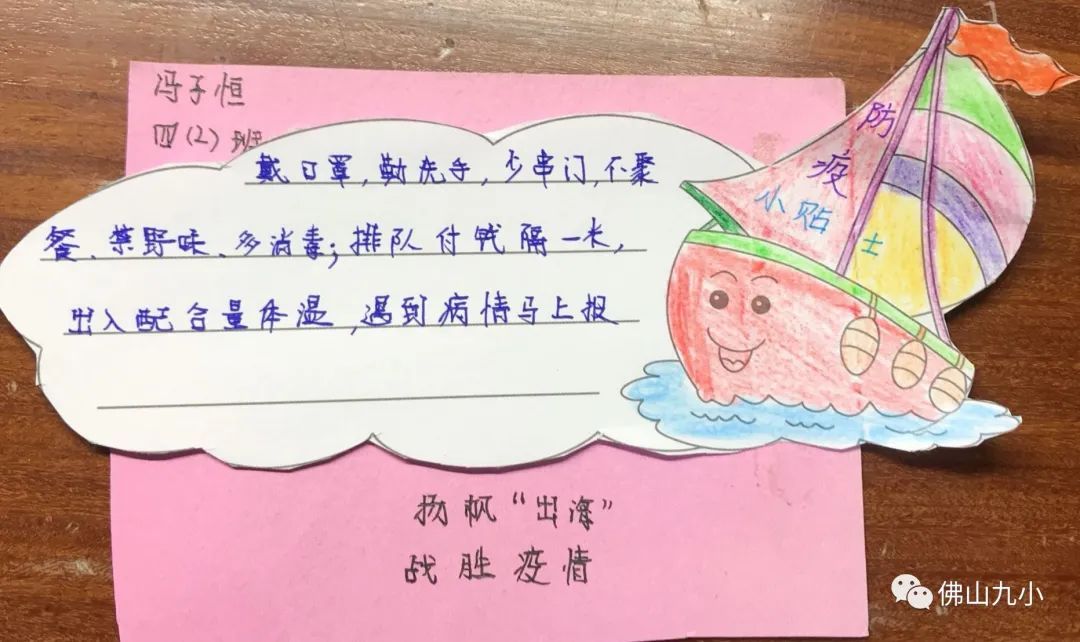 冯子恒
四(2)班
戴口罩,勤洗手,少串门,不聚
餐、禁野味、多消毒;排队付钱隔一米,
出入配合量体温,遇到病情马上报
防疫
小贴士
扬帆“出海”
战胜疫情
佛山九小